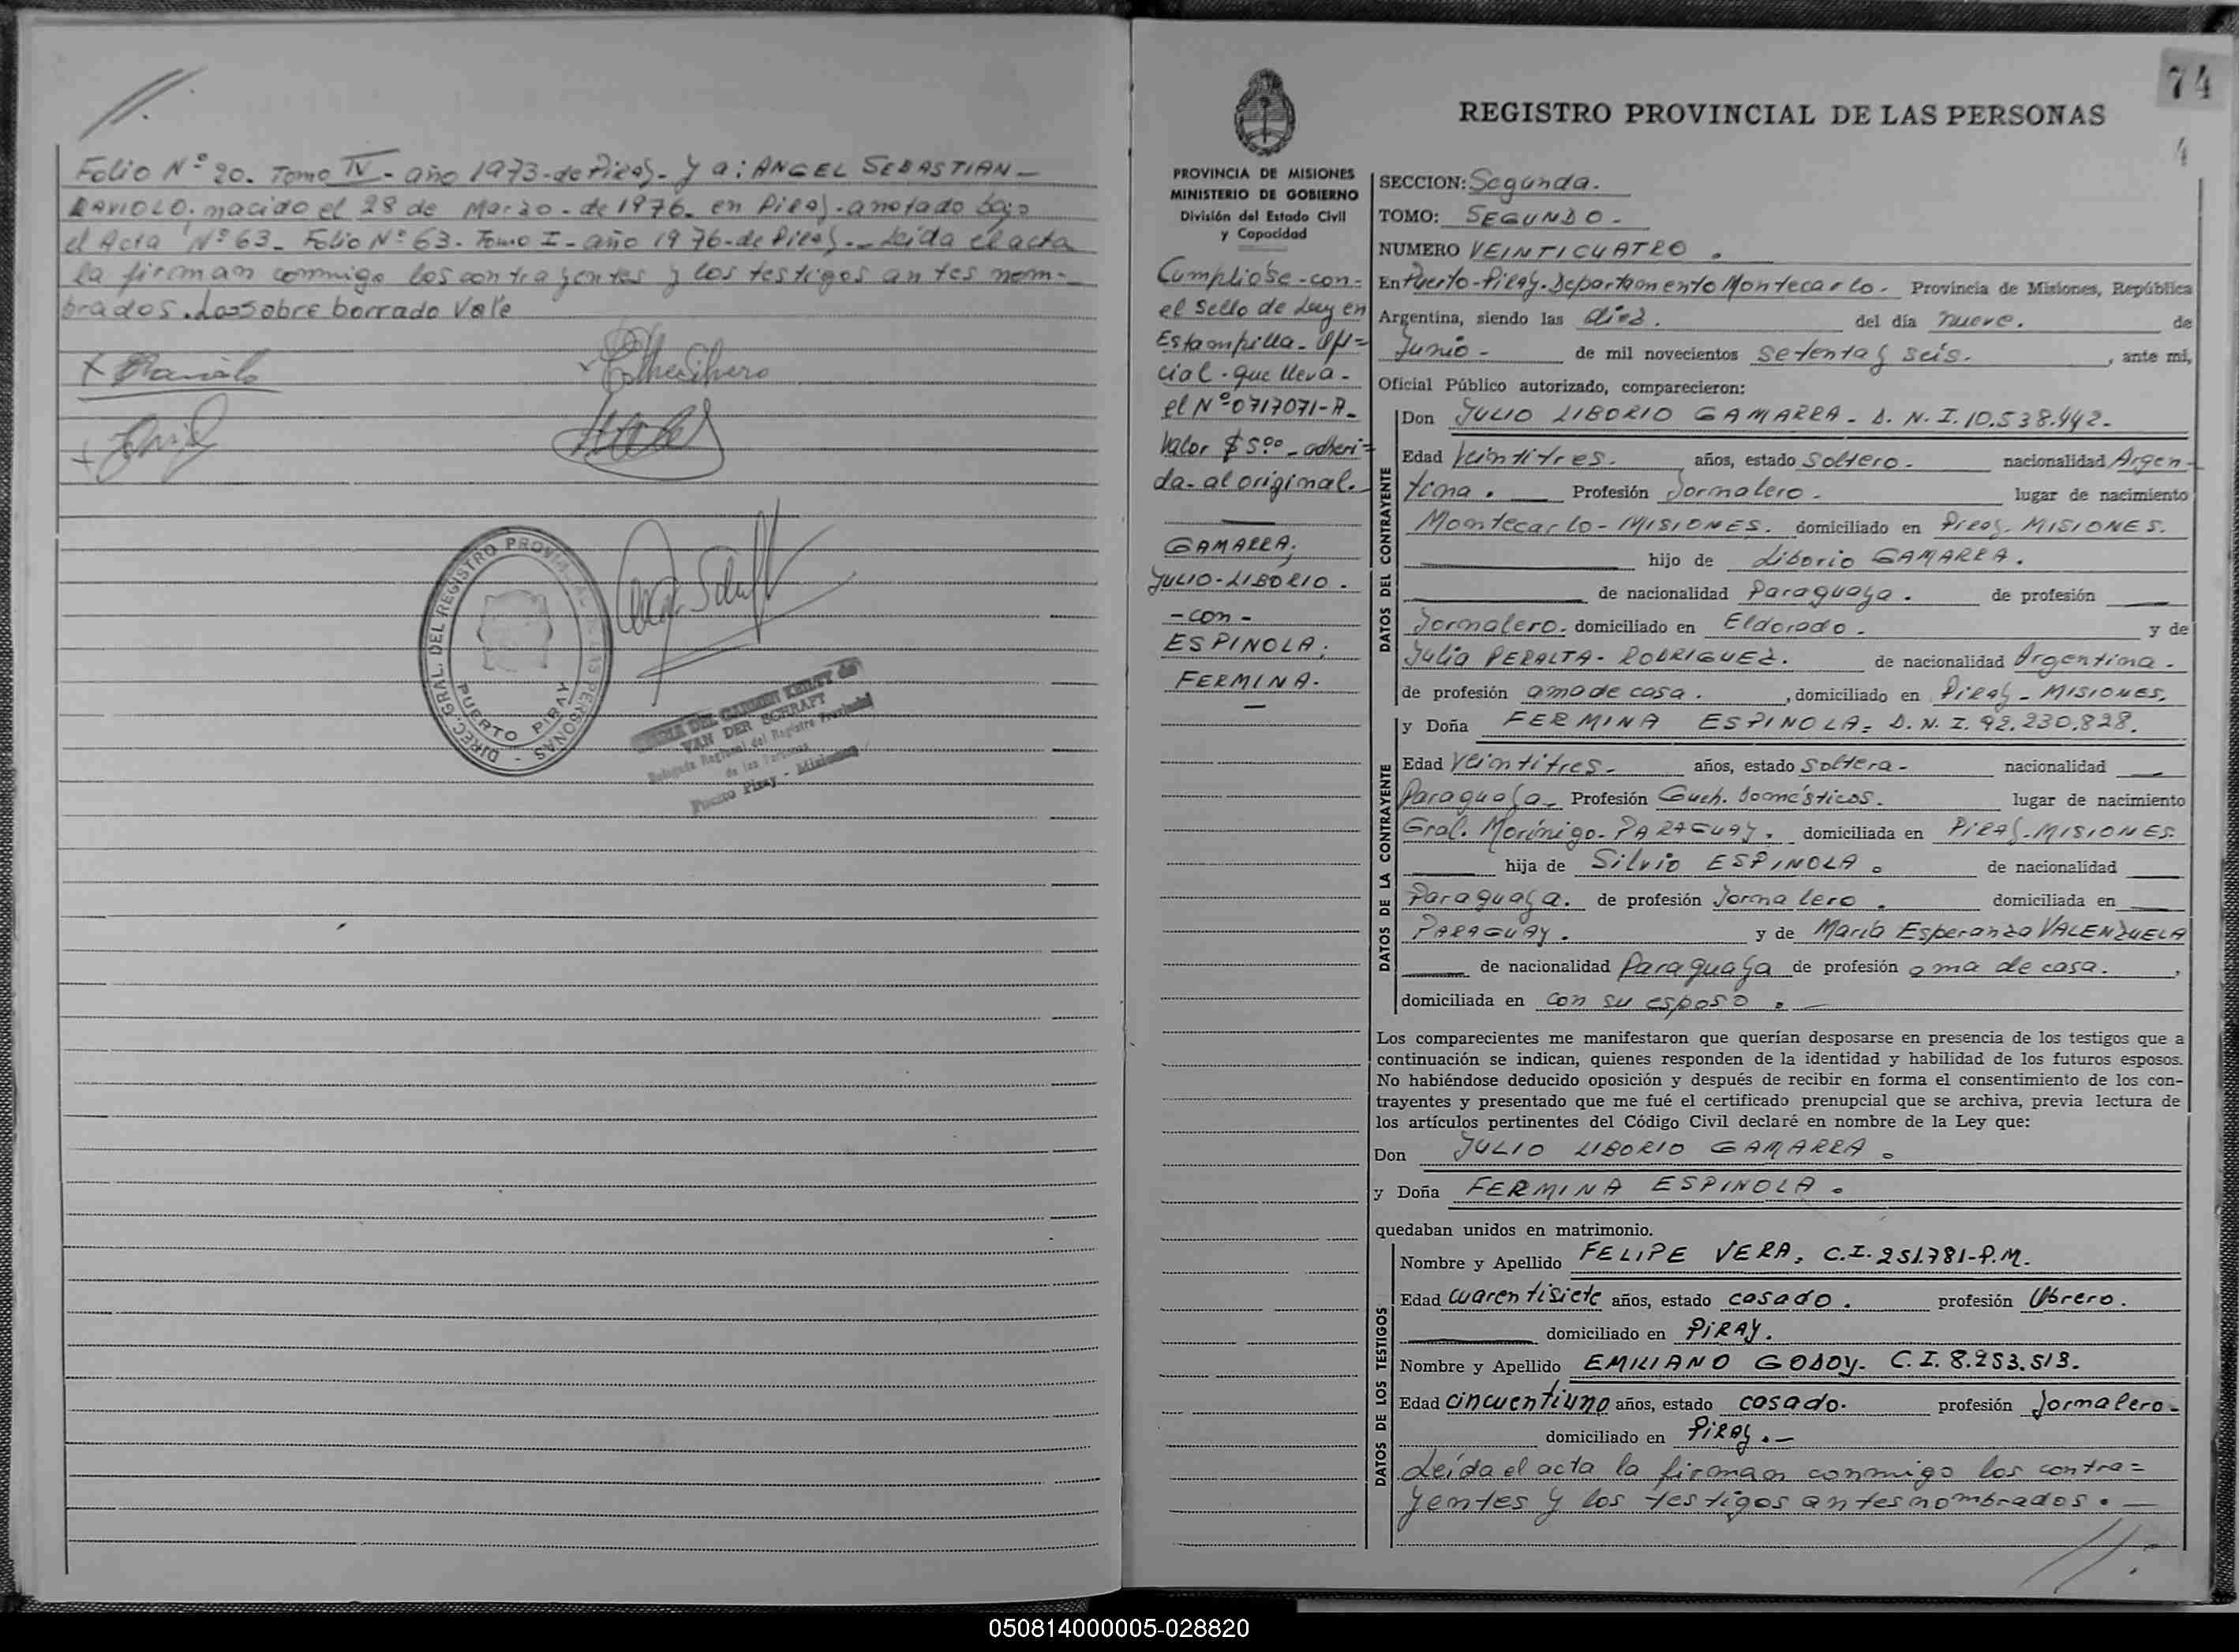 //.
Folio Nº 20. Tomo IV - año 1973 - de Piray - y a: ANGEL SEBASTIAN -
RAVIOLO. nacido el 28 de Marzo - de 1976. en Piray - anotado bajo
el Acta Nº 63 - Folio Nº 63. Tomo I - año 1976 - de Piray. - Leida el acta
la firman conmigo los contrayentes y los testigos antes nom-
brados. Los sobre borrado Vale
DIREC. GRAL. DEL REGISTRO PROVINCIAL DE LAS PERSONAS -
PUERTO PIRAY
DEL CARMEN de
VAN DER SCHRAFT
Delegada Regional del Registro Provincial
de las Personas
Puerto Piray - Misiones
74
REGISTRO PROVINCIAL DE LAS PERSONAS
4
PROVINCIA DE MISIONES
MINISTERIO DE GOBIERNO
División del Estado Civil
y Capacidad
Cumplióse - con =
el Sello de Ley en
Estampilla - Ofi =
cial - que lleva -
el Nº 0717071-A-
Valor $ 5.00 - adheri =
da - al original.
GAMARRA;
JULIO - LIBORIO -
- con -
ESPINOLA;
FERMINA.
SECCION: Segunda.
TOMO: SEGUNDO -
NUMERO VEINTICUATRO .
En Puerto - Piray - Departamento Montecarlo - Provincia de Misiones, República
Argentina, siendo las diez. del día nueve. de
Junio - de mil novecientos setenta y seis. , ante mí,
Oficial Público autorizado, comparecieron:
DATOS DEL CONTRAYENTE
Don JULIO LIBORIO GAMARRA - D. N. I. 10.538.442 -
Edad Veintitres. años, estado Soltero - nacionalidad Argen -
tina . Profesión Jornalero - lugar de nacimiento
Montecarlo - MISIONES. domiciliado en Piray - MISIONES.
hijo de Liborio GAMARRA .
de nacionalidad Paraguaya . de profesión
Jornalero. domiciliado en Eldorado - y de
Julia PERALTA - RODRIGUEZ. de nacionalidad Argentina -
de profesión ama de casa . , domiciliado en Piray - MISIONES.
DATOS DE LA CONTRAYENTE
y Doña FERMINA ESPINOLA = D. N. I. 92.230.828.
Edad Veintitres - años, estado Soltera - nacionalidad
Paraguaya - Profesión Queh. Domésticos. lugar de nacimiento
Gral. Morínigo - PARAGUAY. domiciliada en PIRAY - MISIONES.
hija de Silvio ESPINOLA . de nacionalidad
Paraguaya. de profesión Jornalero . domiciliada en
PARAGUAY . y de María Esperanza VALENZUELA
de nacionalidad Paraguaya de profesión ama de casa. ,
domiciliada en con su esposo . -
Los comparecientes me manifestaron que querían desposarse en presencia de los testigos que a
continuación se indican, quienes responden de la identidad y habilidad de los futuros esposos.
No habiéndose deducido oposición y después de recibir en forma el consentimiento de los con-
trayentes y presentado que me fué el certificado prenupcial que se archiva, previa lectura de
los artículos pertinentes del Código Civil declaré en nombre de la Ley que:
Don JULIO LIBORIO GAMARRA .
y Doña FERMINA ESPINOLA .
quedaban unidos en matrimonio.
DATOS DE LOS TESTIGOS
Nombre y Apellido FELIPE VERA, C.I. 251.781-P.M.
Edad cuarentisiete años, estado casado . profesión Obrero.
domiciliado en PIRAY.
Nombre y Apellido EMILIANO GODOY - C. I. 8.253.513.
Edad cincuentiuno años, estado casado. profesión Jornalero -
domiciliado en Piray . -
Leída el acta la firman conmigo los contra =
yentes y los testigos antes nombrados . -
//.
050814000005-028820